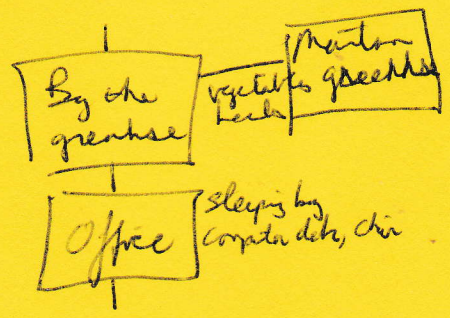 By the
greenhse
vegetables
herbs
Martian
greenhse
Office
sleeping bag
computer desk, chair